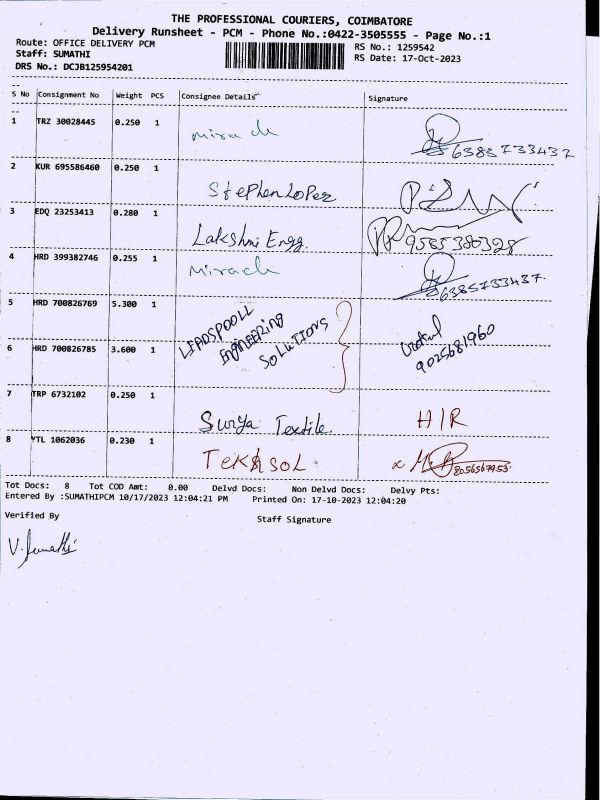 THE PROFESSIONAL COURIERS, COIMBATORE
Delivery Runsheet - PCM - Phone No.:0422-3505555 - Page No.:1
Route: OFFICE DELIVERY PCM
Staff: SUMATHI
DRS No.: DCJB125954201
RS No.: 1259542
RS Date: 17-Oct-2023
S No Consignment No Weight PCS Consignee Details Signature
1 TRZ 30028445 0.250 1 Mirach 6383733437
2 KUR 695586460 0.250 1 Stephen Lopez
3 EDQ 23253413 0.280 1 Lakshmi Engg. 9585380398
4 HRD 399382746 0.255 1 Mirach 6385733437.
5 HRD 700826769 5.300 1
LEADSPOOLL
ENGINEERING
SOLUTIONS
9025681960
6 HRD 700826785 3.600 1
7 TRP 6732102 0.250 1 Surya Textile. H/R
8 YTL 1062036 0.230 1 TEKSSOL x 8056567953
Tot Docs: 8 Tot COD Amt: 0.00 Delvd Docs: Non Delvd Docs: Delvy Pts:
Entered By :SUMATHIPCM 10/17/2023 12:04:21 PM Printed On: 17-10-2023 12:04:20
Verified By
Staff Signature
V. Sumathi